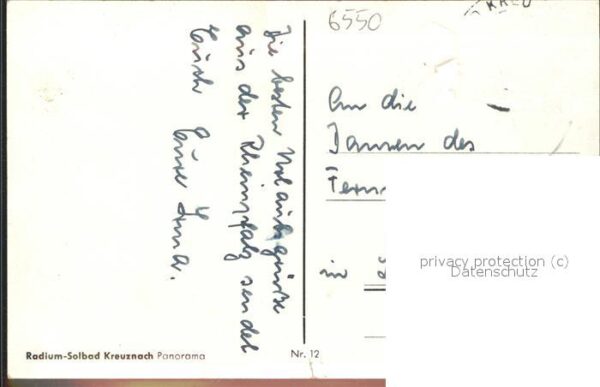 6550
KREU
Die besten Urlaubsgrüße
aus der Rheinpfalz sendet
Euch Eure Irma.
An die
Damen des
Fern
in
privacy protection (c)
Datenschutz
Radium-Solbad Kreuznach Panorama
Nr. 12